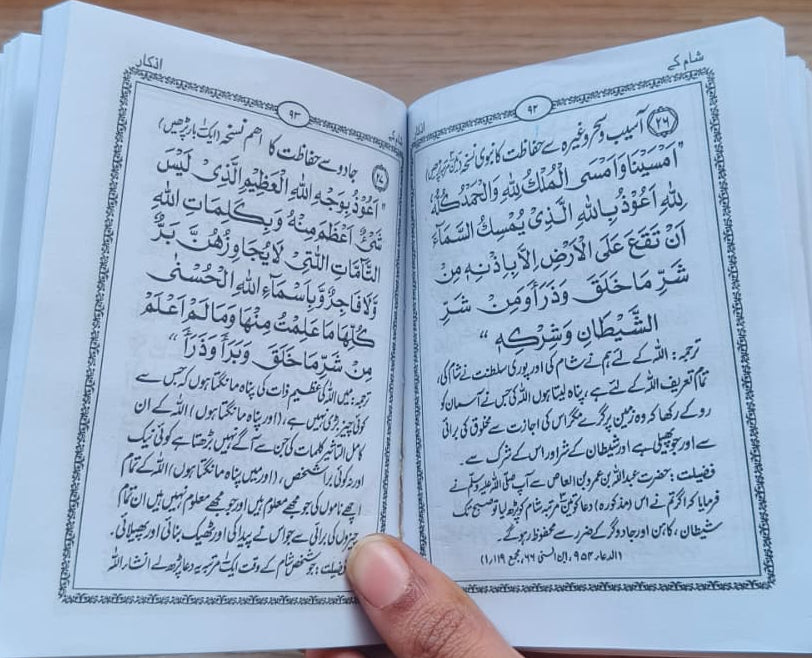 شام کے ۹۲ اذکار
۲۶ آسیب و سحر وغیرہ سے حفاظت کا نبوی نسخہ (تین مرتبہ پڑھیں)
"اَمْسَيْنَا وَاَمْسَى الْمُلْكُ لِلّٰهِ وَالْحَمْدُ كُلُّهٗ
لِلّٰهِ اَعُوْذُ بِاللّٰهِ الَّذِىْ يُمْسِكُ السَّمَآءَ
اَنْ تَقَعَ عَلَى الْاَرْضِ اِلَّا بِاِذْنِهٖ مِنْ
شَرِّ مَا خَلَقَ وَذَرَأَ وَمِنْ شَرِّ
الشَّيْطَانِ وَشِرْكِهٖ"
ترجمہ: اللہ کے لئے ہم نے شام کی اور پوری سلطنت نے شام کی،
تمام تعریف اللہ کے لئے ہے، پناہ لیتا ہوں اللہ کی جس نے آسمان کو
روکے رکھا کہ وہ زمین پر گرے مگر اس کی اجازت سے مخلوق کی برائی
سے اور جو پھیلی ہے اور شیطان کے شر اور اس کے شرک سے۔
فضیلت: حضرت عبداللہ بن عمرو بن العاص سے آپ صلی اللہ علیہ وسلم نے
فرمایا کہ اگر تم نے اس (مذکورہ) دعا کو تین ۳ مرتبہ شام کو پڑھ لیا تو صبح تک
شیطان، کاہن اور جادوگر کے ضرر سے محفوظ رہو گے۔
(الدعاء ۹۵۳، ابن السنی ۶۶، مجمع ۱۱۹/۱)
شام کے ۹۳ اذکار
۲۷ جادو سے حفاظت کا اہم نسخہ (ایک بار پڑھیں)
"اَعُوْذُ بِوَجْهِ اللّٰهِ الْعَظِيْمِ الَّذِىْ لَيْسَ
شَىْءٌ اَعْظَمَ مِنْهُ وَبِكَلِمَاتِ اللّٰهِ
التَّآمَّاتِ اللَّتِىْ لَا يُجَاوِزُهُنَّ بَرٌّ
وَّلَا فَاجِرٌ وَّبِاَسْمَآءِ اللّٰهِ الْحُسْنٰى
كُلِّهَا مَا عَلِمْتُ مِنْهَا وَمَا لَمْ اَعْلَمْ
مِنْ شَرِّ مَا خَلَقَ وَبَرَأَ وَذَرَأَ"
ترجمہ: میں اللہ کی عظیم ذات کی پناہ مانگتا ہوں کہ جس سے
کوئی چیز بڑی نہیں ہے، (اور پناہ مانگتا ہوں) اللہ کے ان
کامل التاثیر کلمات کی جن سے آگے نہیں بڑھتا ہے کوئی نیک
اور نہ کوئی برا شخص، (اور میں پناہ مانگتا ہوں) اللہ کے تمام
اچھے ناموں کی جو مجھے معلوم ہیں اور جو مجھے معلوم نہیں ہیں ان تمام
چیزوں کی برائی سے جو اس نے پیدا کی اور ٹھیک بنائی اور پھیلائی۔
فضیلت: جو شخص شام کے وقت ایک مرتبہ یہ دعا پڑھ لے انشاء اللہ